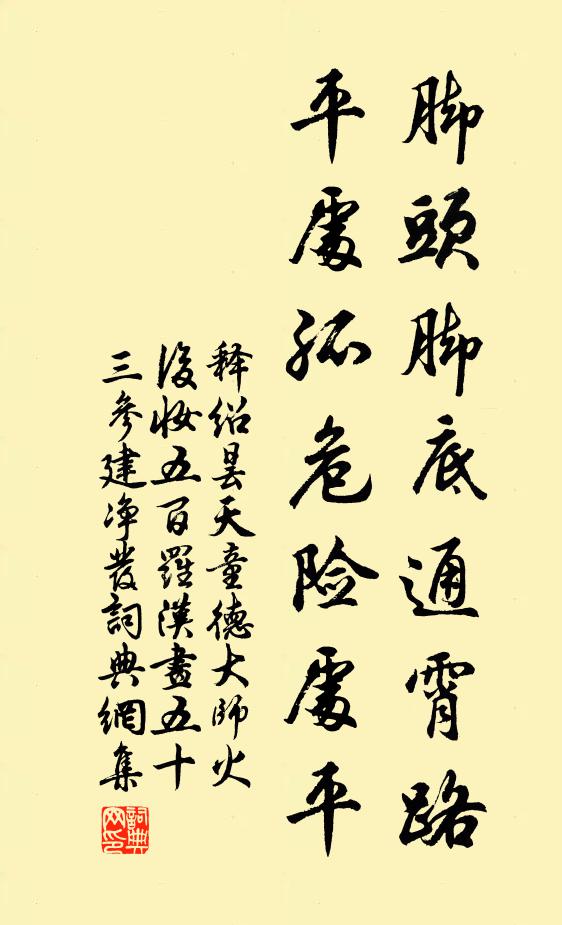 脚頭脚底通霄路
平處孤危险處平
释绍昙天童德大師火
後妆五百羅漢畫五十
三參建净發詞典網集
詞典
网印